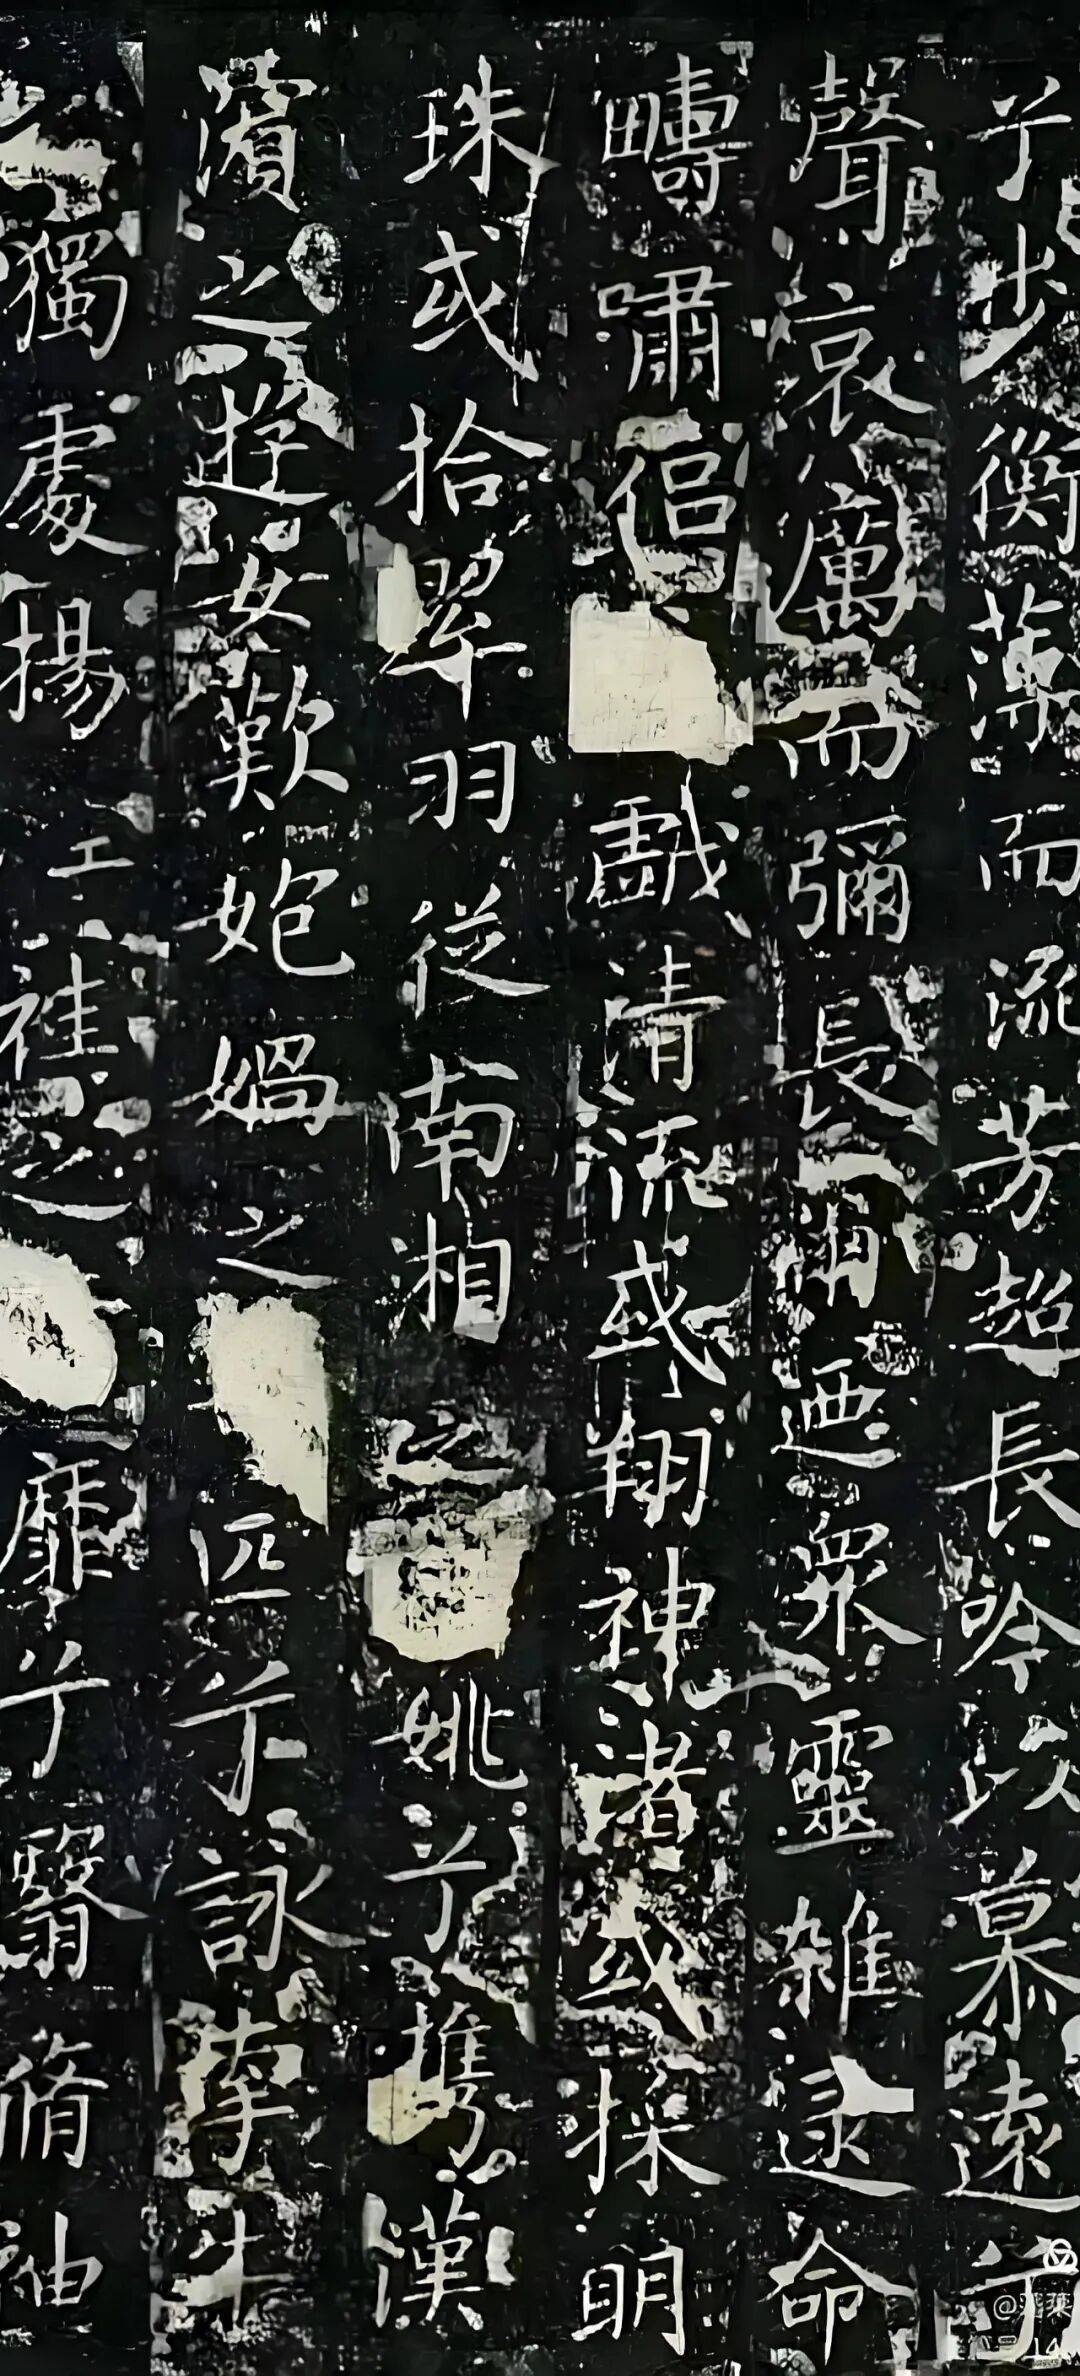 兮步衡薄而流芳超長吟以慕遠兮
聲哀厲而彌長爾迺眾靈雜遝命
疇嘯侶戲清流或翔神渚或採明
珠或拾翠羽從南湘之姚兮攜漢
濱之遊女歎匏媧之匹兮詠牽牛
之獨處揚袿之靡兮翳脩袖